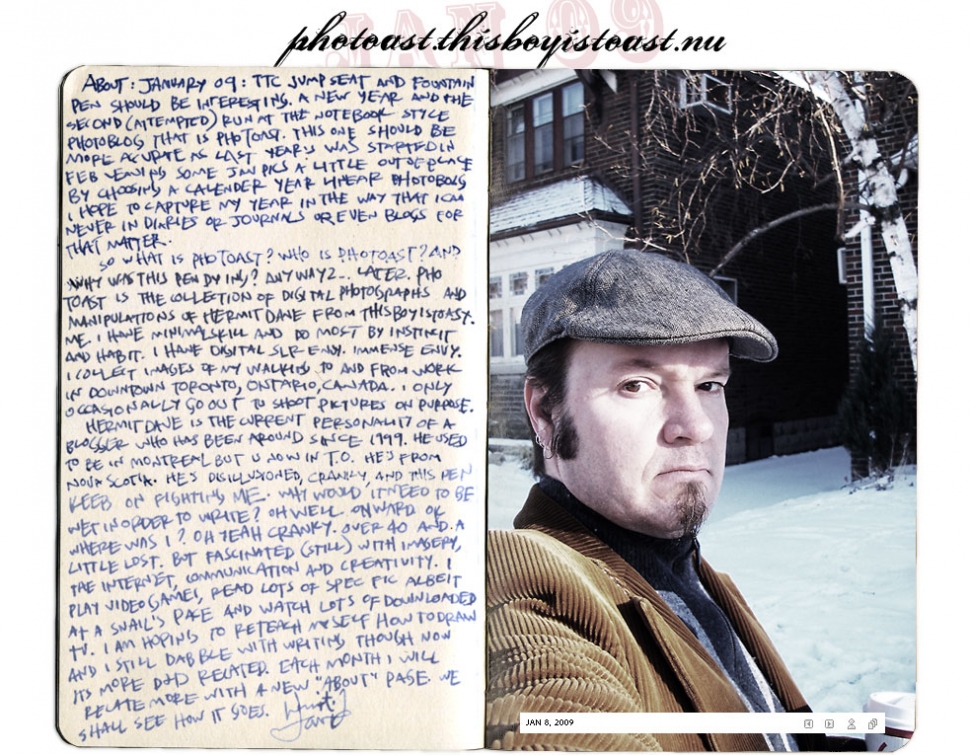 JAN 09
photoast.thisboyistoast.nu
ABOUT: JANUARY 09: TTC JUMP SEAT AND FOUNTAIN
PEN SHOULD BE INTERESTING. A NEW YEAR AND THE
SECOND (ATTEMPTED) RUN AT THE NOTEBOOK STYLE
PHOTOBLOG THAT IS PHOTOAST. THIS ONE SHOULD BE
MORE ACURATE AS LAST YEAR'S WAS STARTED IN
FEB LEAVING SOME JAN PICS A LITTLE OUT OF PLACE
BY CHOOSING A CALENDER YEAR LINEAR PHOTOBLOG
I HOPE TO CAPTURE MY YEAR IN THE WAY THAT I CAN
NEVER IN DIARIES OR JOURNALS OR EVEN BLOGS FOR
THAT MATTER.
SO WHAT IS PHOTOAST? WHO IS PHOTOAST? AND
WHY WAS THIS PEN DYING? ANYWAYZ... LATER. PHO
TOAST IS THE COLLECTION OF DIGITAL PHOTOGRAPHS AND
MANIPULATIONS OF HERMITDAVE FROM THISBOYISTOAST.
ME. I HAVE MINIMAL SKILL AND DO MOST BY INSTINCT
AND HABIT. I HAVE DIGITAL SLR ENVY. IMMENSE ENVY.
I COLLECT IMAGES OF MY WALKING TO AND FROM WORK
IN DOWNTOWN TORONTO, ONTARIO, CANADA. I ONLY
OCCASIONALLY GO OUT TO SHOOT PICTURES ON PURPOSE.
HERMITDAVE IS THE CURRENT PERSONALITY OF A
BLOGGER WHO HAS BEEN AROUND SINCE 1999. HE USED
TO BE IN MONTREAL BUT IS NOW IN T.O. HE'S FROM
NOVA SCOTIA. HE'S DISILLUSIONED, CRANKY, AND THIS PEN
KEEPS ON FIGHTING ME. WHY WOULD IT NEED TO BE
WET IN ORDER TO WRITE? OH WELL. ONWARD OK
WHERE WAS I? OH YEAH CRANKY. OVER 40 AND A
LITTLE LOST. BUT FASCINATED (STILL) WITH IMAGERY,
THE INTERNET, COMMUNICATION AND CREATIVITY. I
PLAY VIDEO GAMES, READ LOTS OF SPEC FIC ALBEIT
AT A SNAIL'S PACE AND WATCH LOTS OF DOWNLOADED
TV. I AM HOPING TO RETEACH MYSELF HOW TO DRAW
AND I STILL DABBLE WITH WRITING THOUGH NOW
ITS MORE D+D RELATED. EACH MONTH I WILL
RELATE MORE WITH A NEW "ABOUT" PAGE. WE
SHALL SEE HOW IT GOES.
JAN 8, 2009